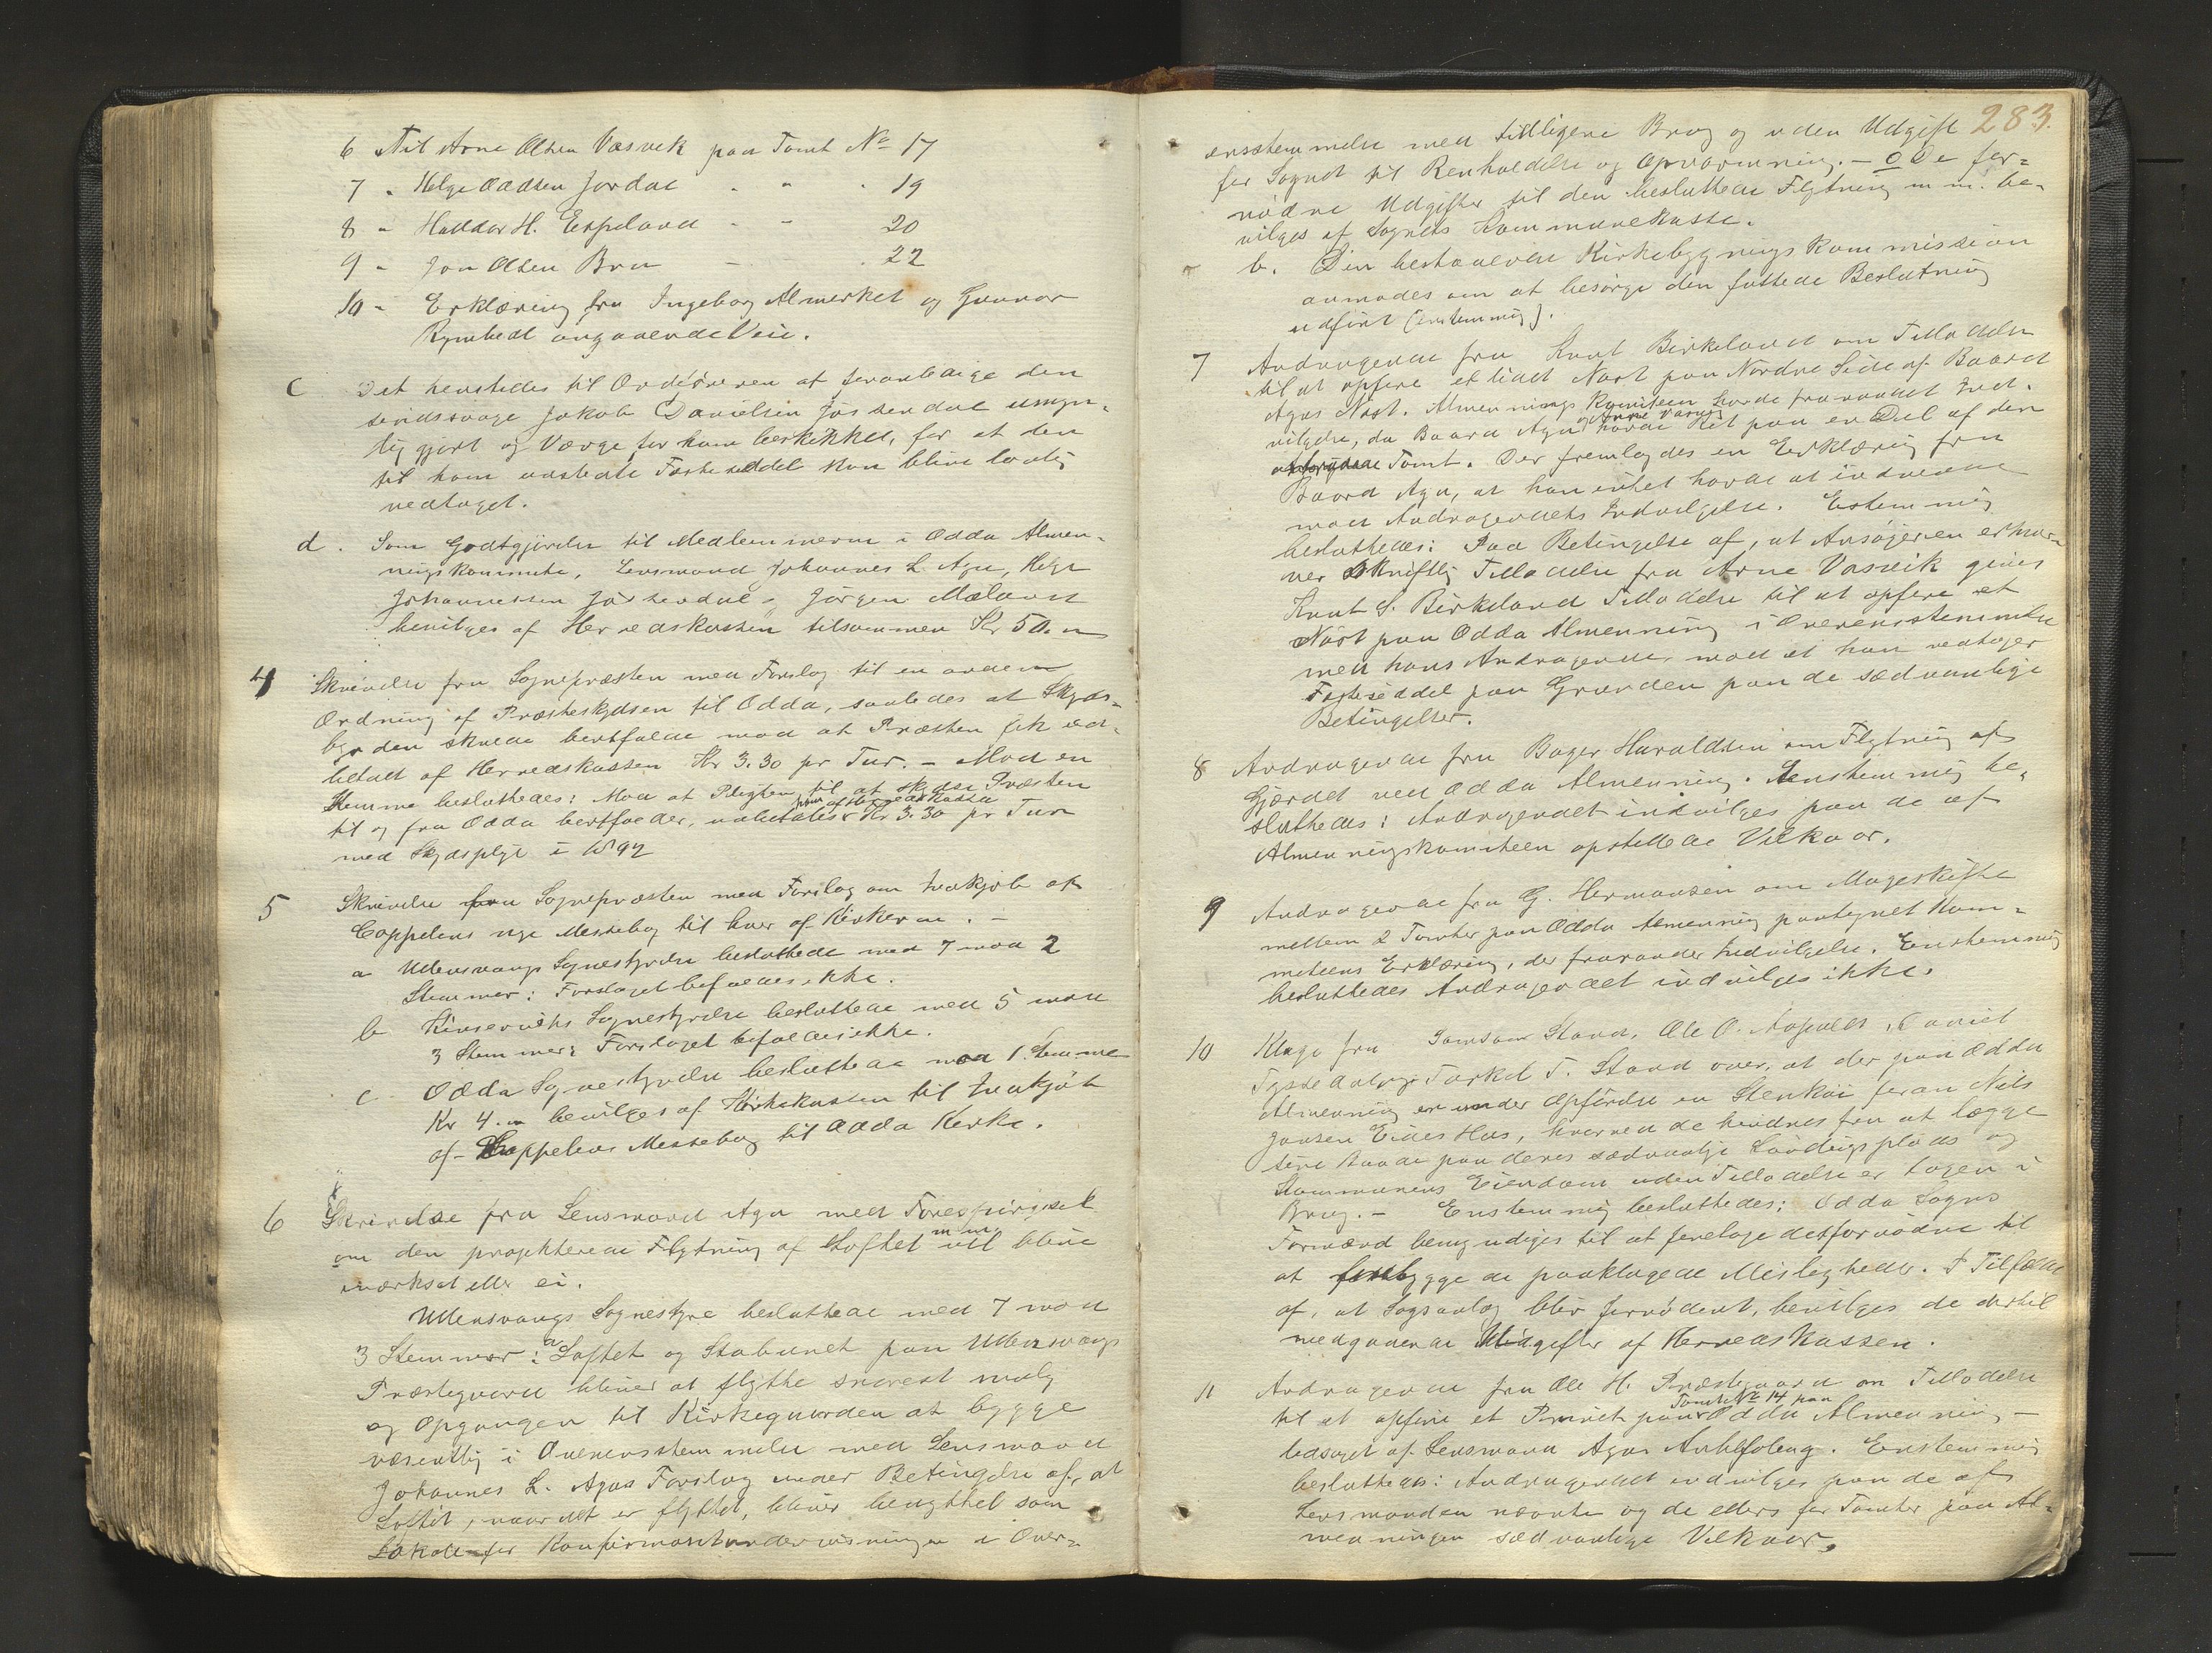 6 Til Arne Olsen Vasvik paa Tomt No 17
7 " Helge Oddsen Jordal " " " 19
8 " Haldor H. Espeland " " 20
9 " Jon Olsen Bru " " 22
10 " Erklæring fra Ingeborg Almerket og Gunnar
angaaende Vei.
c Det henstilles til Ordføreren at foranledige den
sindssvage Jakob Danielsen Jøsendal umyn-
diggjort og Værge for ham beskikket, for at den
til ham udstedte Festeseddel kan blive lovlig
vedtaget.
d. Som Godtgjørelse til Medlemmerne i Odda Almen-
ningskommite, Lensmand Johannes L. Aga, Helge
Johannessen Jøsendal, Jørgen Mæland
bevilges af Herredskassen tilsammen Kr 50.00
4 Skrivelse fra Sognepræsten med Forslag til en anden
Ordning af Præsteskydsen til Odda, saaledes at Skyds-
byrden skulde bortfalde mod at Præsten fik ud-
betalt af Herredskassen Kr 3.30 pr Tur. – Mod en
Stemme besluttedes: Mod at Pligten til at skydse Præsten
til og fra Odda bortfalder, udbetales ham af Herredskassa Kr 3.30 pr Tur
med Skydspligt i 1892
5 Skrivelse fra Sognepræsten med Forslag om Indkjøb af
Cappelens nye Messebog til hver af Kirkerne. –
a Ullensvangs Sognestyrelse besluttede med 7 mod 2
Stemmer: Forslaget bifaldes ikke.
b Kinserviks Sognestyrelse besluttede med 5 mod
3 Stemmer: Forslaget bifaldes ikke.
c Odda Sognestyrelse besluttede mod 1 Stemme
Kr 4.00 bevilges af Kirkekassen til Indkjøb
af Cappelens Messebog til Odda Kirke.
6 Skrivelse fra Lensmand Aga med Forespørgsel
om den projekterede Flytning af Loftet m.m. vil blive
iværksat eller ei.
Ullensvangs Sognestyre besluttede med 7 mod
3 Stemmer: a Loftet og Stabburet paa Ullensvangs
Præstegaard bliver at flytte snarest mulig
og Opgangen til Kirkegaarden at bygge
væsentlig i Overensstemmelse med Lensmand
Johannes L. Agas Forslag under Betingelse af, at
Loftet, naar det er flyttet, bliver benyttet som
Lokale for Konfirmantundervisningen i Over-
283.
ensstemmelse med tidligere Brug og uden Udgift
for Sognet til Renholdelse og Opvarmning. – De for-
nødne Udgifter til den besluttede Flytning m.m. be-
vilges af Sognets Kommunekasse.
b. Den bestaaende Kirkebygningskommission
anmodes om at besørge den fattede Beslutning
udført (enstemmig).
7 Andragende fra Knut Birkeland om Tilladelse
til at opføre et lidet Nøst paa Nordre Side af Baard
Agas Nøst. Almenningskomiteen havde fraraadet Ind-
vilgelse, da Baard Aga og Arne Vasvig havde Ret paa en Del af den
Tomt. Der fremlagdes en Erklæring fra
Baard Aga, at han intet havde at indvende
mod Andragendets Indvilgelse. Enstemmig
besluttedes: Paa Betingelse af, at Ansøgeren erhver-
ver skriftlig Tilladelse fra Arne Vasvik gives
Knut S. Birkeland Tilladelse til at opføre et
Nøst paa Odda Almenning i Overensstemmelse
med hans Andragende, mod at han vedtager
Festeseddel paa Grunden paa de sædvanlige
Betingelser.
8 Andragende fra Bager Haraldsen om Flytning af
Gjærdet ved Odda Almenning. Enstemmig be-
sluttedes: Andragendet indvilges paa de af
Almenningskomiteen opstillede Vilkaar.
9 Andragende fra G. Hermansen om Mageskifte
mellem 2 Tomter paa Odda Almenning paategnet Kom-
miteens Erklæring, der fraraader Indvilgelse. Enstemmig
besluttedes Andragendet indvilges ikke.
10 Klage fra Samson Stana, Ole O. Aapaldt, Daniel
Tyssedal og Torkel T. Stana over, at der paa Odda
Almenning er under Opførelse en Stenkai foran Nils
Jonsen Eides Hus, hvorved de hindres fra at lægge
sine Baade paa deres sædvanlige Landingsplads og
Kommunens Eiendom uden Tilladelse er tagen i
Brug. – Enstemmig besluttedes: Odda Sogns
Formænd bemyndiges til at foretage det fornødne til
at forebygge de paaklagede Misligheder. I Tilfælde
af, at Sagsanlæg blir fornødent, bevilges de dertil
medgaaende Udgifter af Herredskassen.
11 Andragende fra Ole H. Præstegaard om Tilladelse
til at opføre et paa Tomt No 14 paa Odda Almenning –
ledsaget af Lensmand Agas Anbefaling. Enstemmig
besluttedes: Andragendet indvilges paa de af
Lensmanden nævnte og de ellers for Tomter paa Al-
menningen sædvanlige Vilkaar.